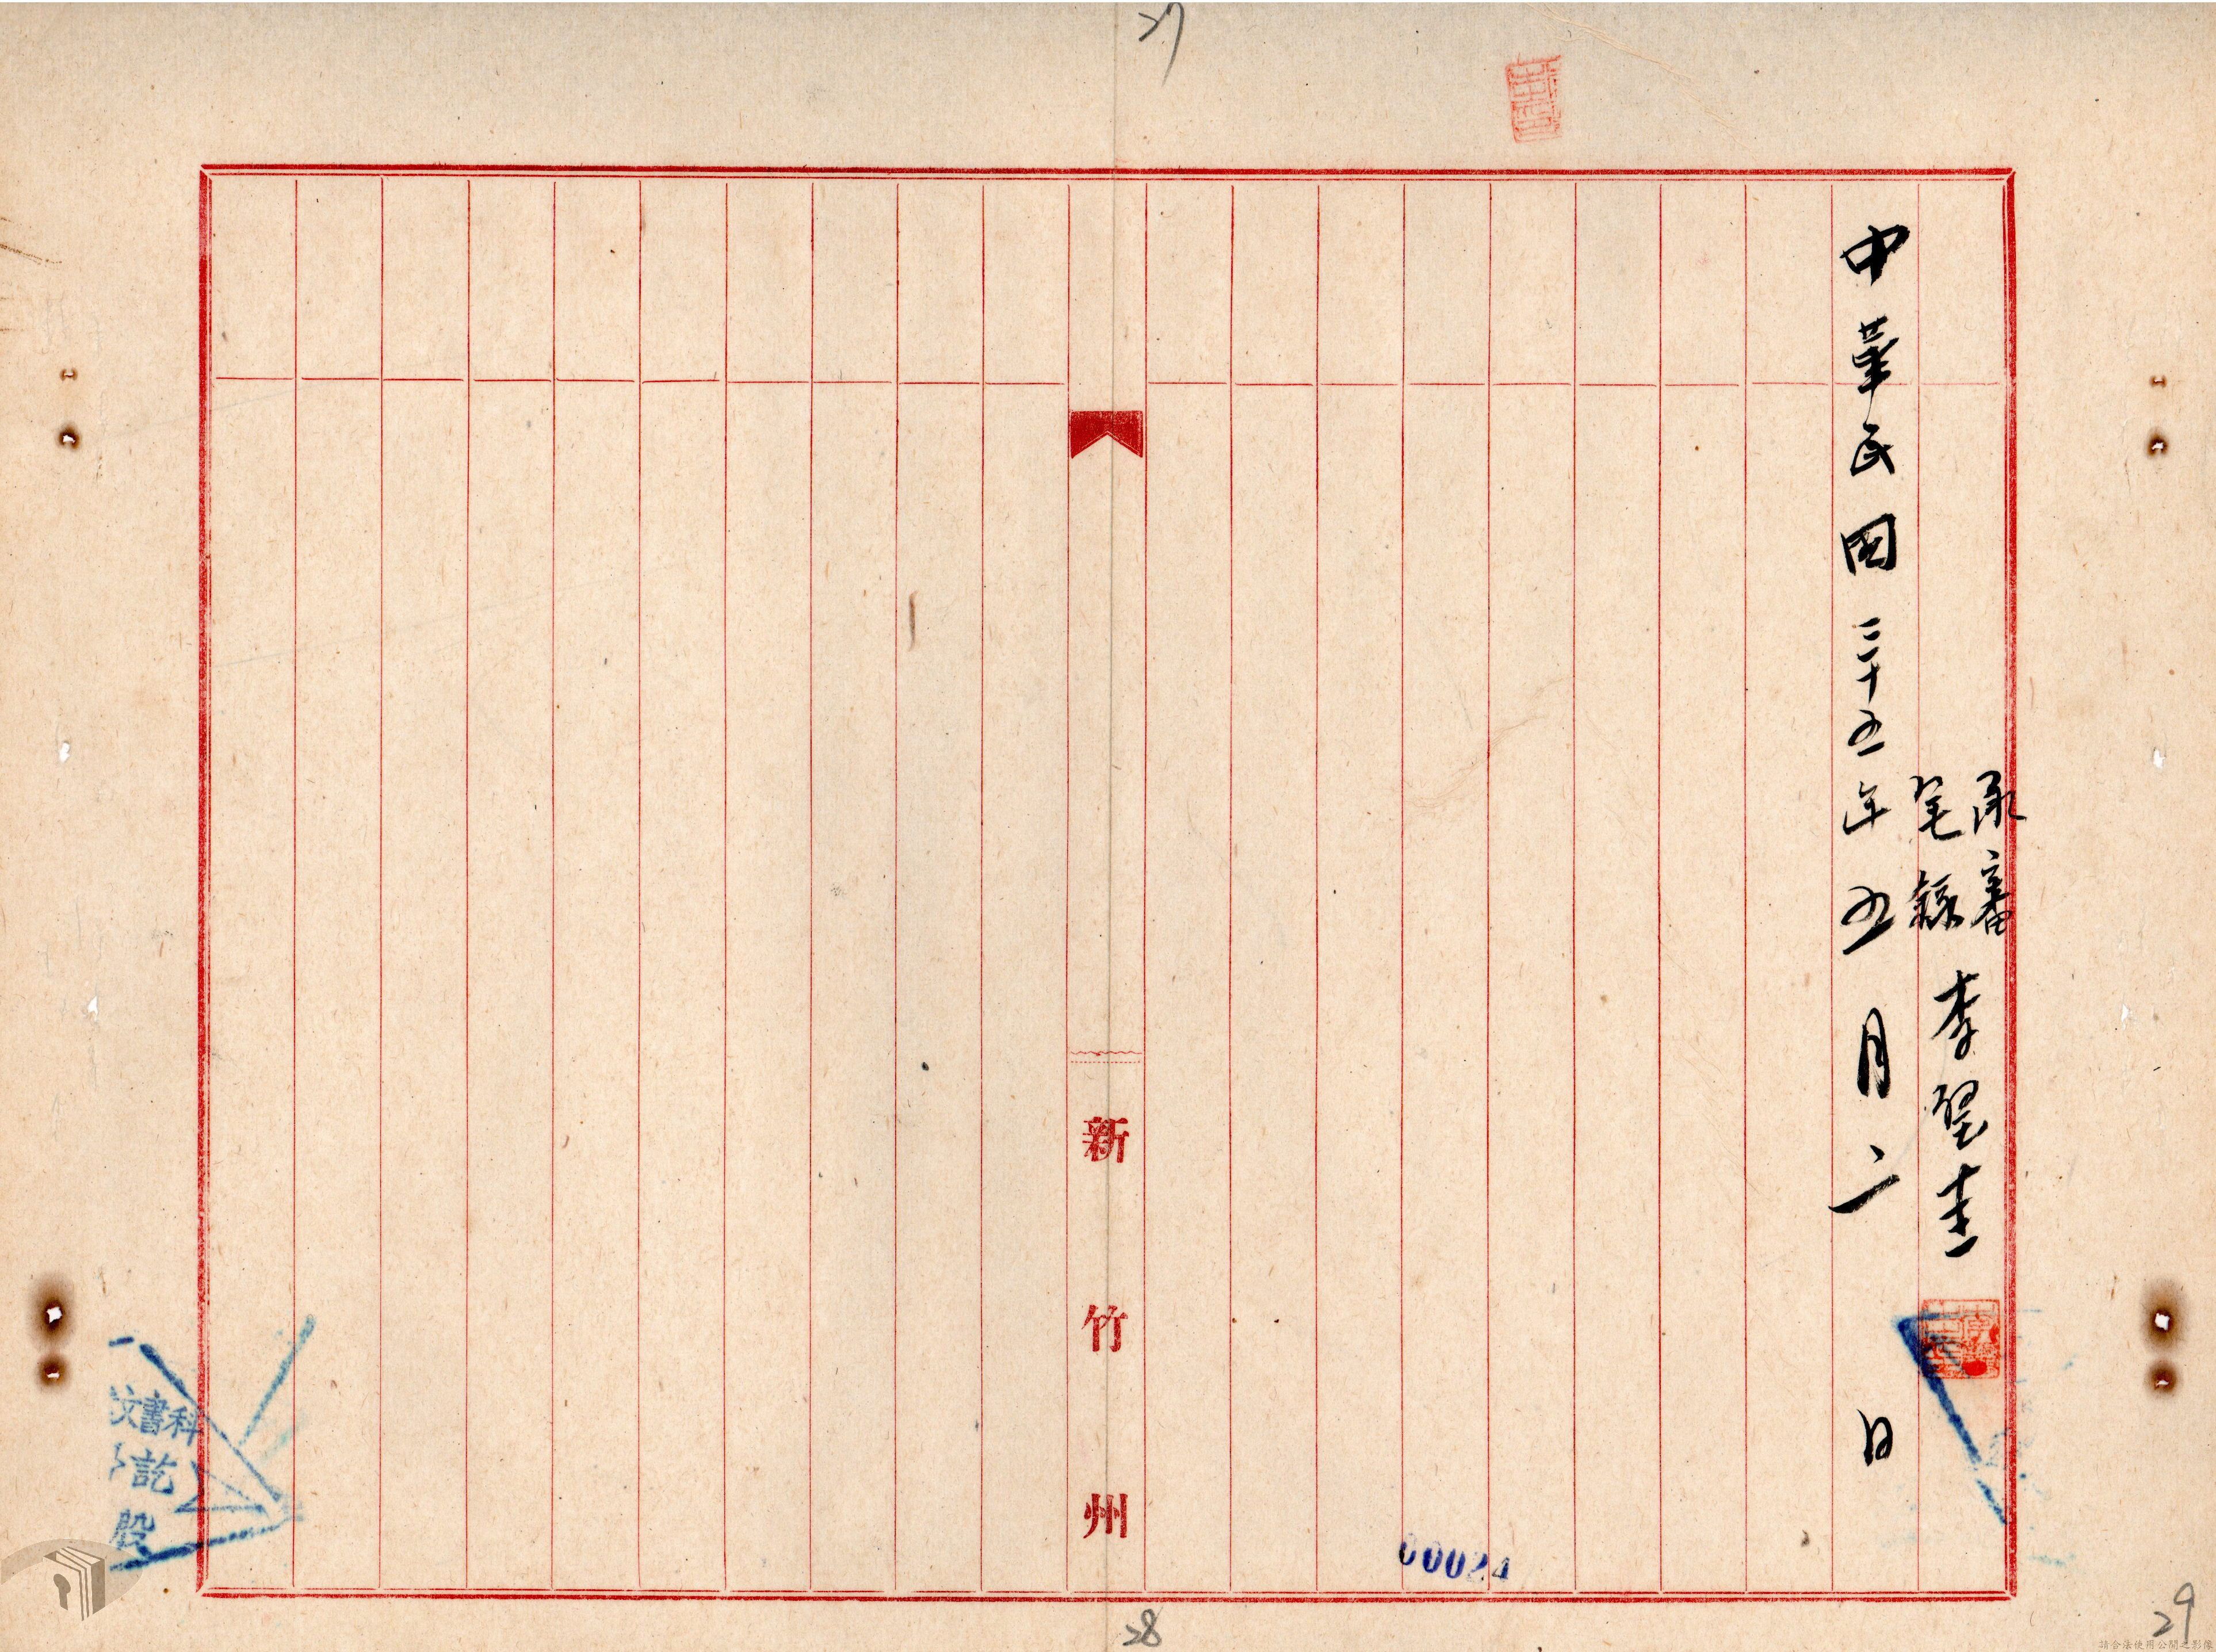 27
承審
笔錄
李堅圭
中華民国三十五年五月二日
新竹州
00024
文書科
訖
股
28
29
請合法使用公開之影像